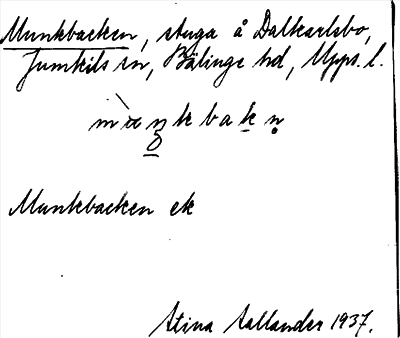 Munkbacken, stuga å Dalkarlsbo,
Jumkils sn, Bälinge hd, Upps. l.
Munkbacken ek
Stina Aallander 1937.